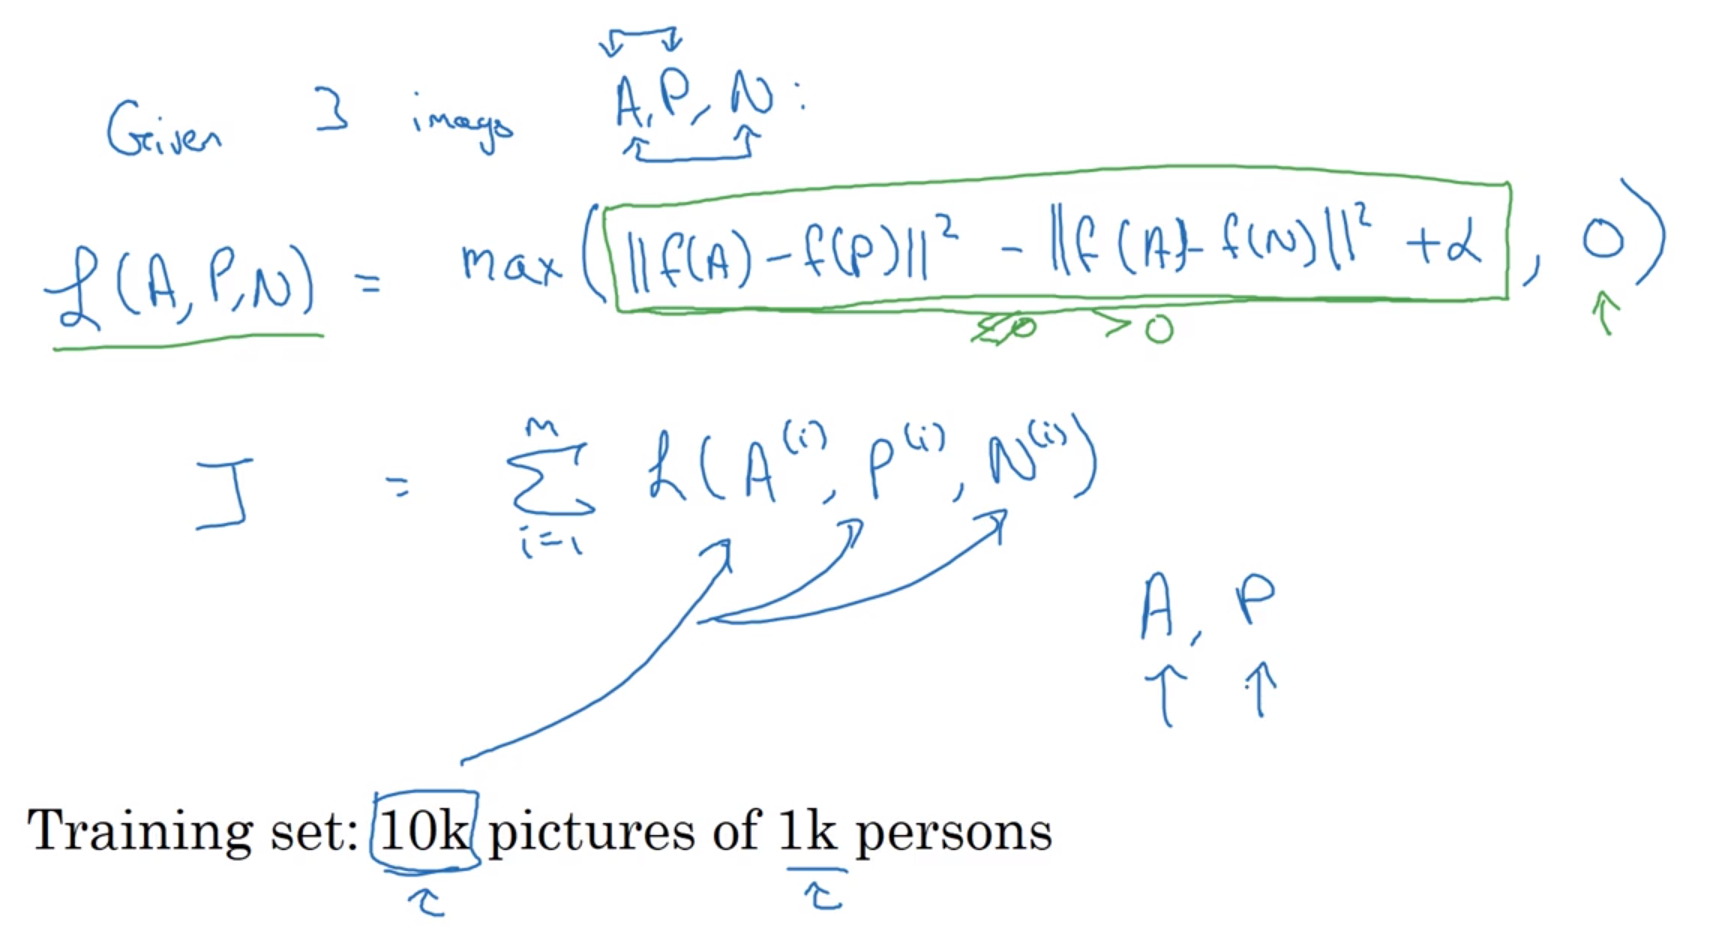 Given 3 images A, P, N:
L(A, P, N) = max(||f(A) - f(P)||² - ||f(A) - f(N)||² + α, 0)
≤0 > 0
J = ∑ᵢ₌₁ᵐ L(A⁽ⁱ⁾, P⁽ⁱ⁾, N⁽ⁱ⁾)
A, P
Training set: 10k pictures of 1k persons